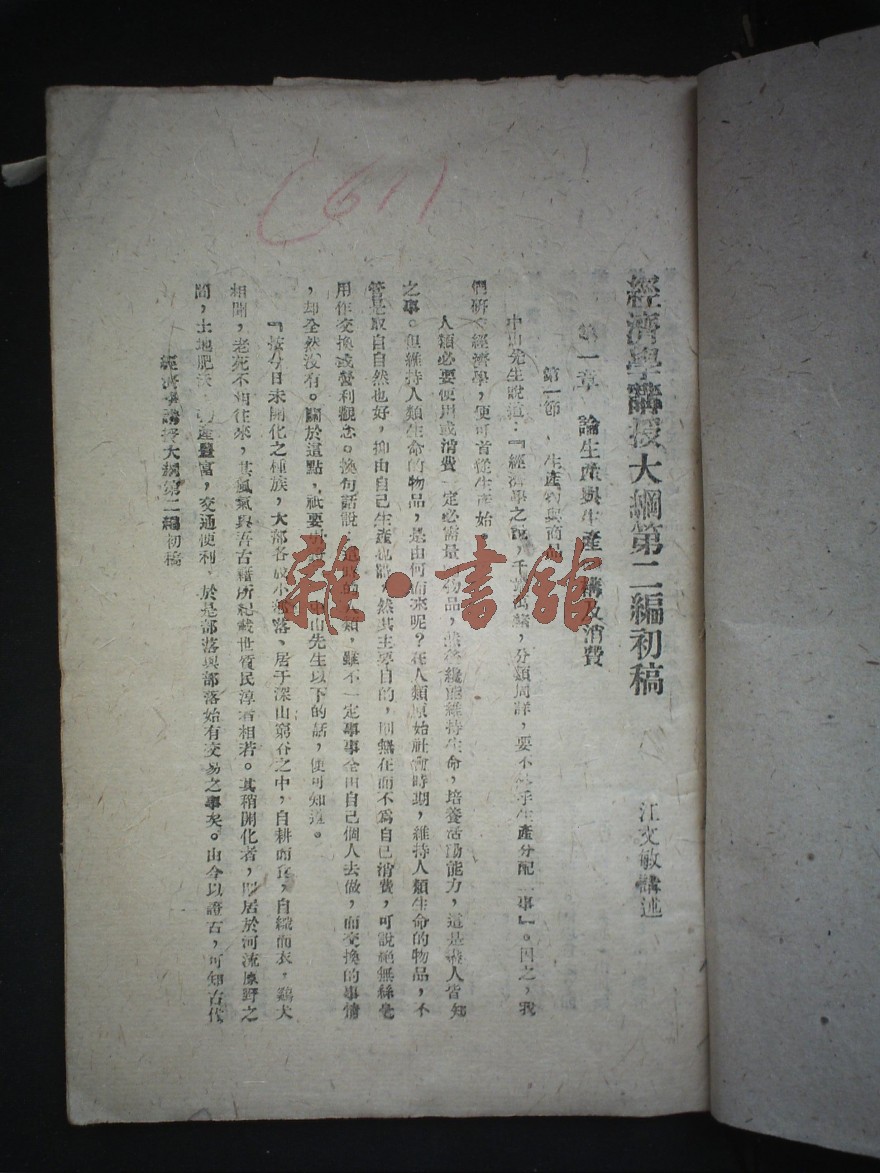 (611
經濟學講授大綱第二編初稿
江文敏講述
第一章 論生產與生產 構及消費
第一節 生產物與商品
中山先生說道:『經濟學之說,千端萬緒,分類周詳,要不外乎生產分配二事』。因之,我
們研究經濟學,便可首從生產始。
人類必要使用或消費一定必需量 物品,然後纔能維持生命,培養活動能力,這是盡人皆知
之事。但維持人類生命的物品,是由何而來呢?在人類原始社會時期,維持人類生命的物品,不
管是取自自然也好,抑由自己生產也 ,然其主要目的,則無在而不爲自己消費,可說絕無絲毫
用作交換或營利觀念。換句話說, 時的人類,雖不一定事事全由自己個人去做,而交換的事情
,却全然沒有。關於這點,祇要 中山先生以下的話,便可知道。
『按今日未開化之種族,大部各成小部落、居于深山窮谷之中,自耕而食,自織而衣,鷄犬
相聞,老死不相往來,其風氣與吾古籍所紀載世質民淳者相若。其稍開化者,則居於河流原野之
間,土地肥沃, 產豐富,交通便利,於是部落與部落始有交易之事矣。由今以證古,可知古代
經濟學講授大綱第二編初稿
雜·書館